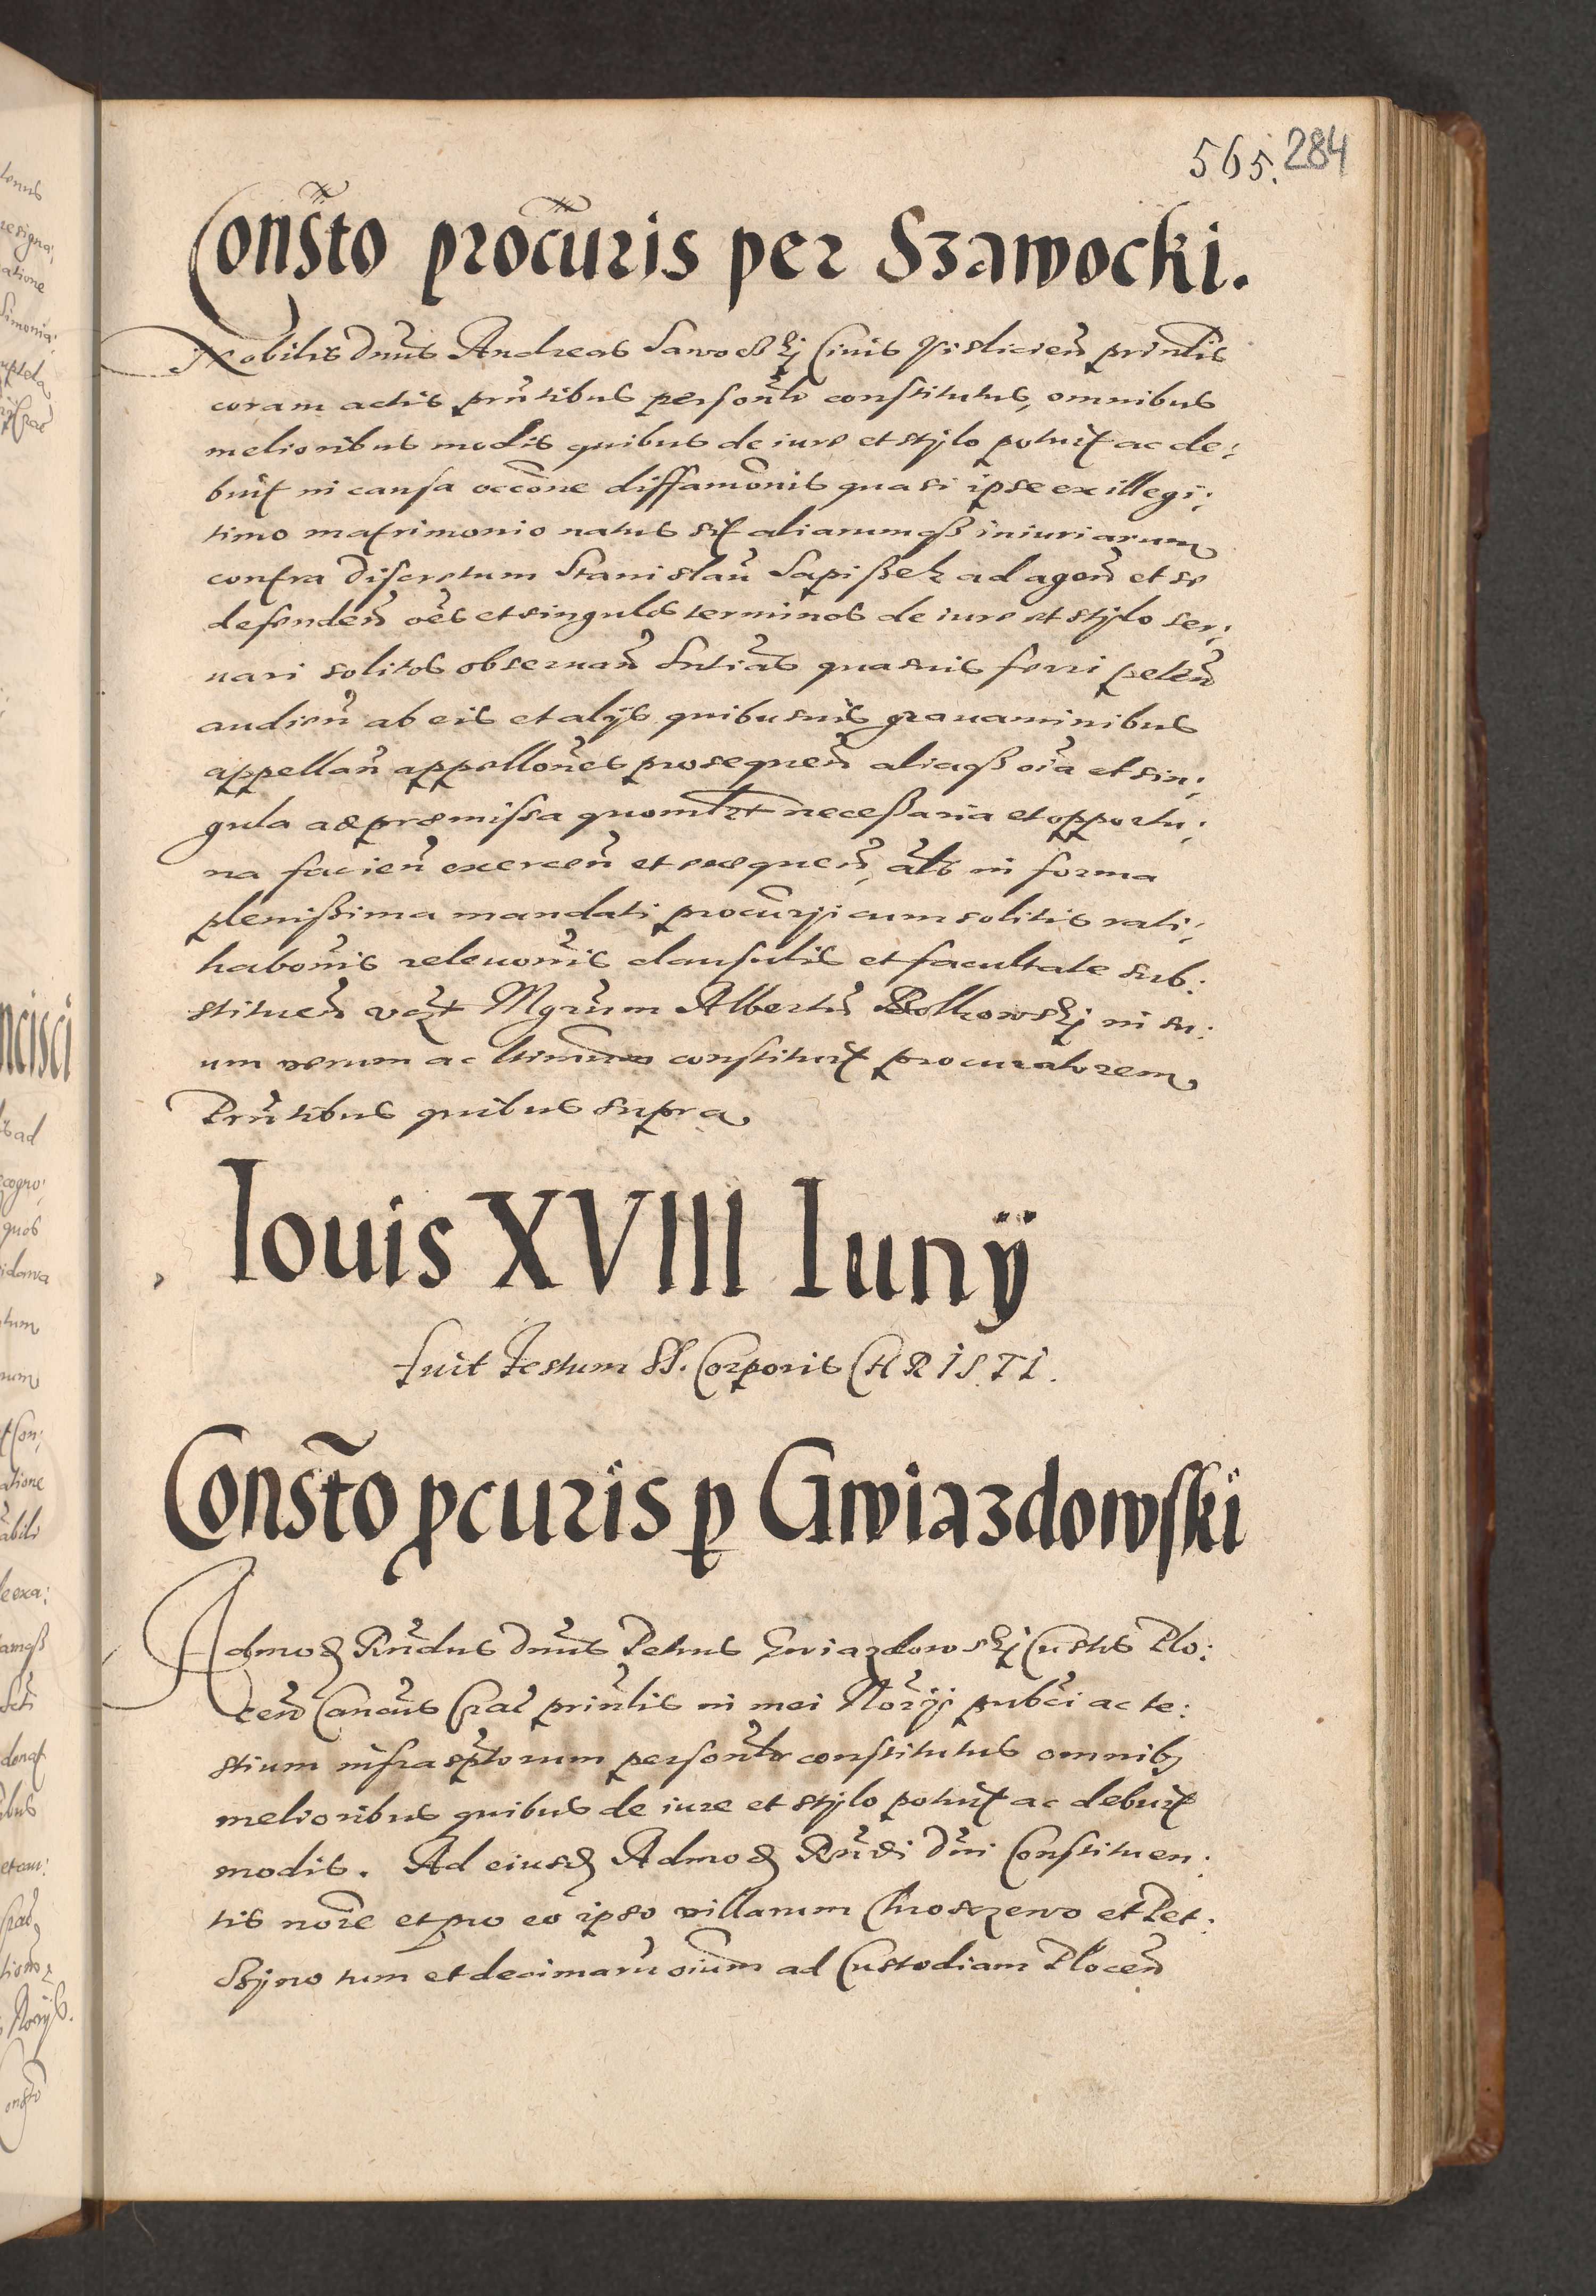 565. 284
Consto procuris per Szawocki.
Nobilis Dnus Andreas Sawocki Civis Visliciens printlis
coram actis prntibus personlr constitutus, omnibus
melioribus modis quibus de iure et stylo potuit ac de:
buit in causa occone diffamonis quasi ipse ex illegi:
timo matrimonio natus sit aliarumqß iniuriarum
contra Discretum Stanislaũ Sapißek ad agenđ et se
defendenđ oes et singulos terminos de iure et stylo ser:
uari solitos obseruanđ Sntias quasuis ferri petenđ
audienđ ab eis et alijs quibusuis grauaminibus
appellanđ appellones prosequenđ aliaqß oia et sin:
gula ad præmissa quomlzt necessaria et opportu:
na facienđ exercenđ et exequenđ, als in forma
plenißima mandati procurij cum solitis rati:
habonis releuonis clausulis et facultate sub:
stituenđ vczt Mgrum Albertũ Bolkowski in su:
um verum ac ltimum constituit procuratorem
Prntibus quibus supra
Iouis XVIII Iunÿ
fuit Festum SS. Corporis CHRISTI.
Consto pcuris p Gwiazdowski
Admođ Rndus Dnus Petrus Gwiazdowski Custos Plo:
cenđ Cancus Crac printlis in mei Norij pubci ac te:
stium infrasptorum personlr constitutus omnibꝫ
melioribus quibus de iure et stylo potuit ac debuit
modis. Ad eiusđ Admođ Rndi Dni Constituen:
tis nore et pro eo ipso villarum Chroszewo et Pet:
 tum et decimarũ oium ad Custodiam Plocenđ